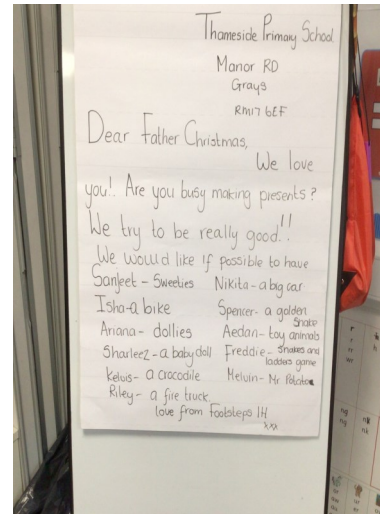 Thameside Primary School
Manor RD
Grays
RM17 6EF
Dear Father Christmas,
We love
you!. Are you busy making presents?
We try to be really good!!
We would like if possible to have
Sanjeet - Sweeties
Isha - a bike
Ariana - dollies
Sharleez - a baby doll
Kelvis - a crocodile
Riley - a fire truck.
Nikita - a big car
Spencer - a golden
Snake
Aedan - toy animals
Freddie - Snakes and
ladders game
Melvin - Mr Potatoe
love from Footsteps 1H
xxx